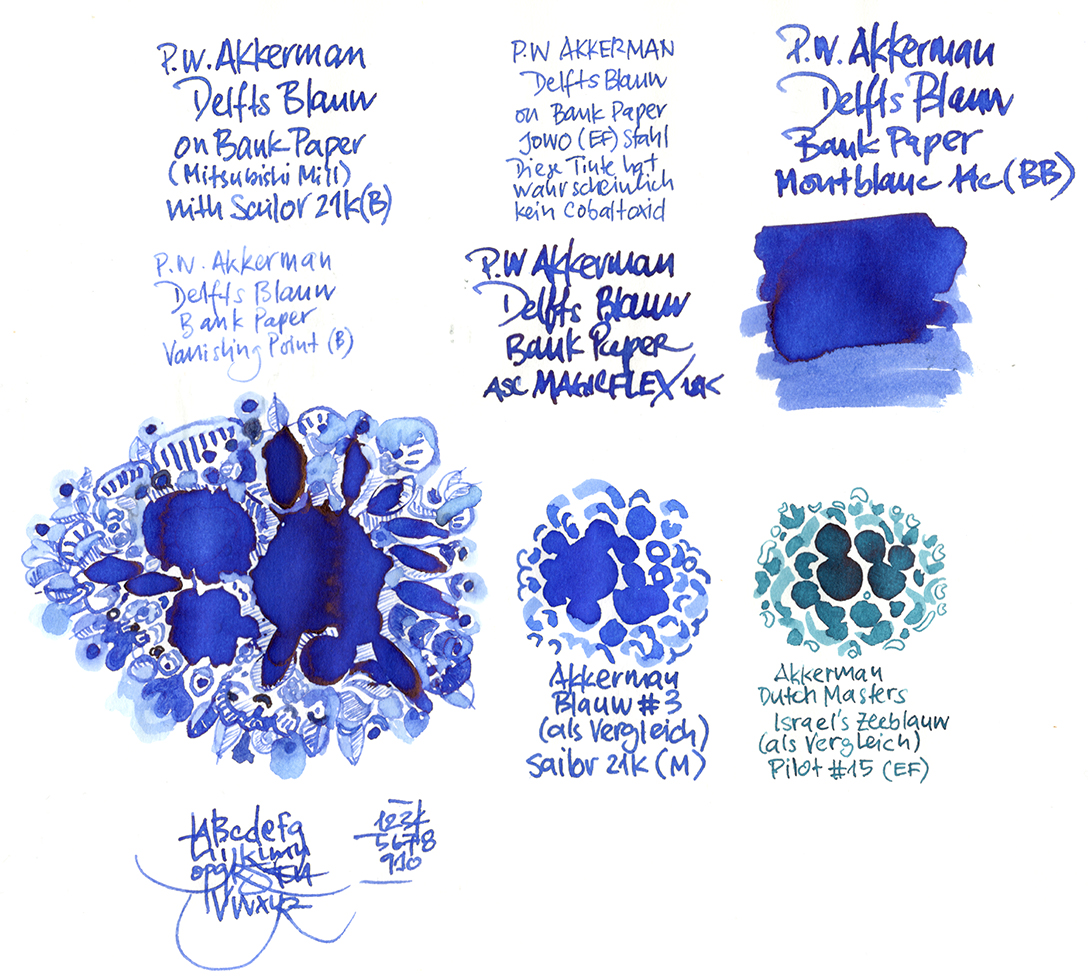 P.W. Akkerman
Delfts Blauw
on Bank Paper
(Mitsubishi Mill)
with Sailor 21k (B)
P.W AKKERMAN
Delfts Blauw
on Bank Paper
JOWO (EF) Stahl
Diese Tinte hat
wahrscheinlich
kein Cobaltoxid
P.W. Akkerman
Delfts Blauw
Bank Paper
Montblanc 14c (BB)
P.W. Akkerman
Delfts Blauw
Bank Paper
Vanishing Point (B)
P.W Akkerman
Delfts Blauw
Bank Paper
ASC MAGICFLEX 14K
Akkerman
Blauw #3
(als Vergleich)
Sailor 21k (M)
Akkerman
Dutch Masters
Israel's Zeeblauw
(als Vergleich)
Pilot #15 (EF)
ABcdefg
1234
5678
910